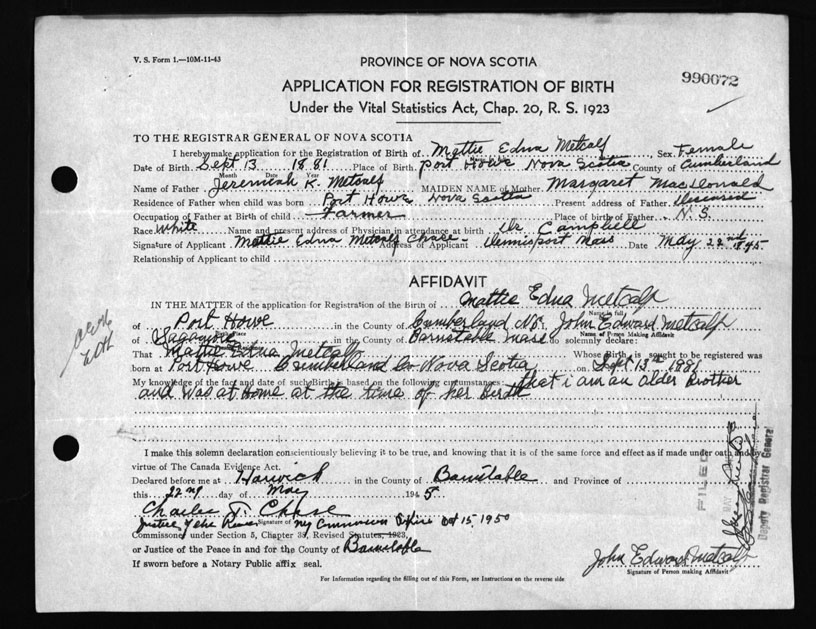 V. S. Form 1.—10M-11-43
PROVINCE OF NOVA SCOTIA
990072
APPLICATION FOR REGISTRATION OF BIRTH
Under the Vital Statistics Act, Chap. 20, R. S. 1923
TO THE REGISTRAR GENERAL OF NOVA SCOTIA
I hereby make application for the Registration of Birth of Mattie Edna Metcalf Sex Female
Date of Birth Sept 13 1881 Place of Birth Port Howe Nova Scotia County of Cumberland
Month Date Year
Name of Father Jeremiah K. Metcalf MAIDEN NAME of Mother Margaret MacDonald
Residence of Father when child was born Port Howe Nova Scotia Present address of Father Deceased
Occupation of Father at Birth of child Farmer Place of birth of Father N. S.
Race White Name and present address of Physician in attendance at birth Dr. Campbell
Signature of Applicant Mattie Edna Metcalf Chase Address of Applicant Dennisport Mass Date May 22nd 1945
Relationship of Applicant to child
AFFIDAVIT
IN THE MATTER of the application for Registration of the Birth of Mattie Edna Metcalf
Name in full
of Port Howe in the County of Cumberland NS I, John Edward Metcalf
Birth Place Name of Person Making Affidavit
of Sagamore in the County of Barnstable Mass do solemnly declare:
That Mattie Edna Metcalf Whose Birth is sought to be registered was
born at Port Howe Cumberland Co Nova Scotia on Sept 13th 1881
My knowledge of the fact and date of such Birth is based on the following circumstances: that i am an older Brother
and was at Home at the time of her Birth
I make this solemn declaration conscientiously believing it to be true, and knowing that it is of the same force and effect as if made under oath and by
virtue of The Canada Evidence Act.
Declared before me at Harwich in the County of Barnstable and Province of
this 22nd day of May 1945
Charles T. Chase
Justice of the Peace Signature of My Commission Expires Oct 15, 1950
Commissoner under Section 5, Chapter 38, Revised Statutes, 1923,
or Justice of the Peace in and for the County of Barnstable
If sworn before a Notary Public affix seal.
FILED
Deputy Registrar General
John Edward Metcalf
Signature of Person making Affidavit
For Information regarding the filling out of this Form, see Instructions on the reverse side